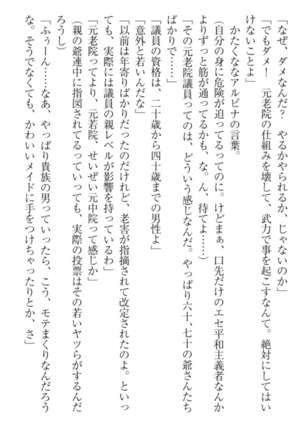 「なぜ、ダメなんだ？　やるかやられるか、じゃないのか」
「でもダメ！　元老院の仕組みを壊して、武力で事を起こすなんて。絶対にしてはい
けないことよ」
　かたくななアルビナの言葉。
（自分の身に危険が迫ってるってのに。けどまぁ、口先だけのエセ平和主義者なんか
よりずっと筋が通ってるかも、な。ん、待てよ……）
「その元老院議員ってのは、どういう感じなんだ。やっぱり六十、七十の爺さんたち
ばかりで……」
「議員の資格は、二十歳から四十歳までの男性よ」
「意外と若いんだな」
「以前は年寄りばかりだったのだけれど、老害が指摘されて改定されたのよ。といっ
ても、実際には議員の親レベルが影響を持っているわ」
「元老院ってより、元若院、せいぜい元中院って感じか」
（親の爺連中に指図されてるっていっても、実際の投票はその若いヤツらがするんだ
ろうし）
「ふぅーん……なあ、やっぱり貴族の男っていったら、こう、モテまくりなんだろう
な。そうでなくても、かわいいメイドに手をつけちゃってたりとか、さ」